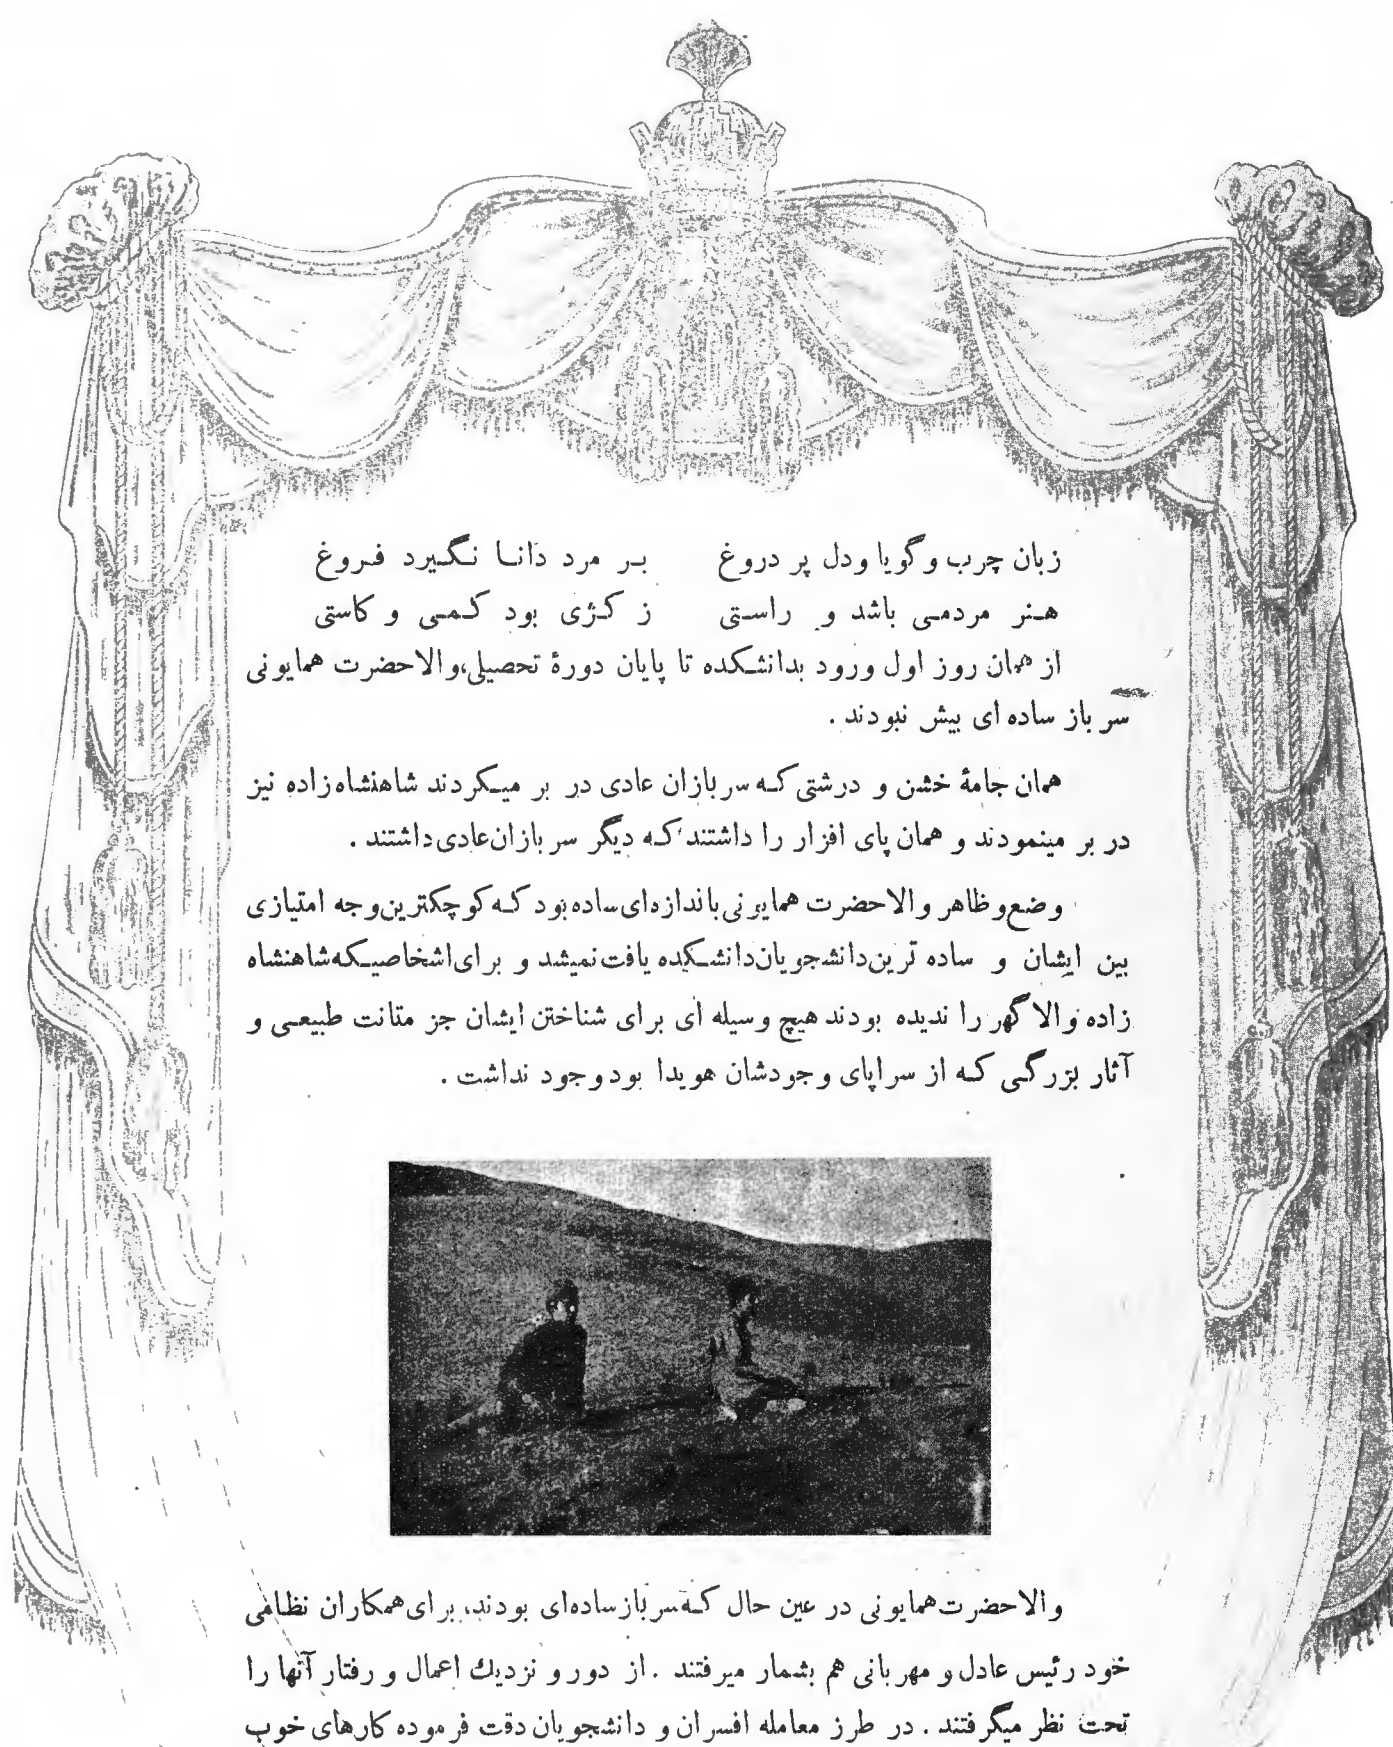 زبان چرب و گویا و دل پر دروغ بر مرد دانا نگیرد فروغ
هنر مردمی باشد و راستی ز کژی بود کمی و کاستی
از همان روز اول ورود بدانشکده تا پایان دورهٔ تحصیلی، والاحضرت همایونی
سرباز ساده ای بیش نبودند .
همان جامهٔ خشن و درشتی که سربازان عادی در بر میکردند شاهنشاه زاده نیز
در بر مینمودند و همان پای افزار را داشتند که دیگر سربازان عادی داشتند .
وضع و ظاهر والاحضرت همایونی باندازه‌ای ساده بود که کوچکترین وجه امتیازی
بین ایشان و ساده ترین دانشجویان دانشکده یافت نمیشد و برای اشخاصیکه شاهنشاه
زاده والا گهر را ندیده بودند هیچ وسیله ای برای شناختن ایشان جز متانت طبیعی و
آثار بزرگی که از سراپای وجودشان هویدا بود وجود نداشت .
والاحضرت همایونی در عین حال که سرباز ساده‌ای بودند، برای همکاران نظامی
خود رئیس عادل و مهربانی هم بشمار میرفتند . از دور و نزدیك اعمال و رفتار آنها را
تحت نظر میگرفتند . در طرز معامله افسران و دانشجویان دقت فرموده کارهای خوب